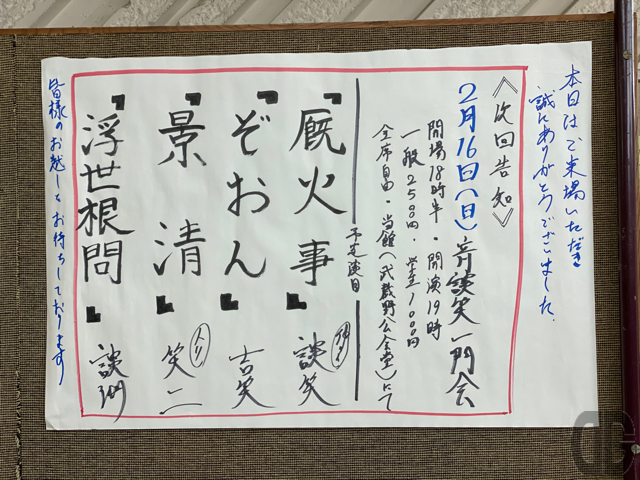 本日はご来場いただき
誠にありがとうございました。
《次回告知》
2月16日(日)立川談笑一門会
開場18時半・開演19時
一般2500円・学生1000円
全席自由・当館(武蔵野公会堂)にて
予定演目
『厩火事』談笑
『ぞおん』吉笑
『景清』笑二
『浮世根問』談洲
皆様のお越しをお待ちしております